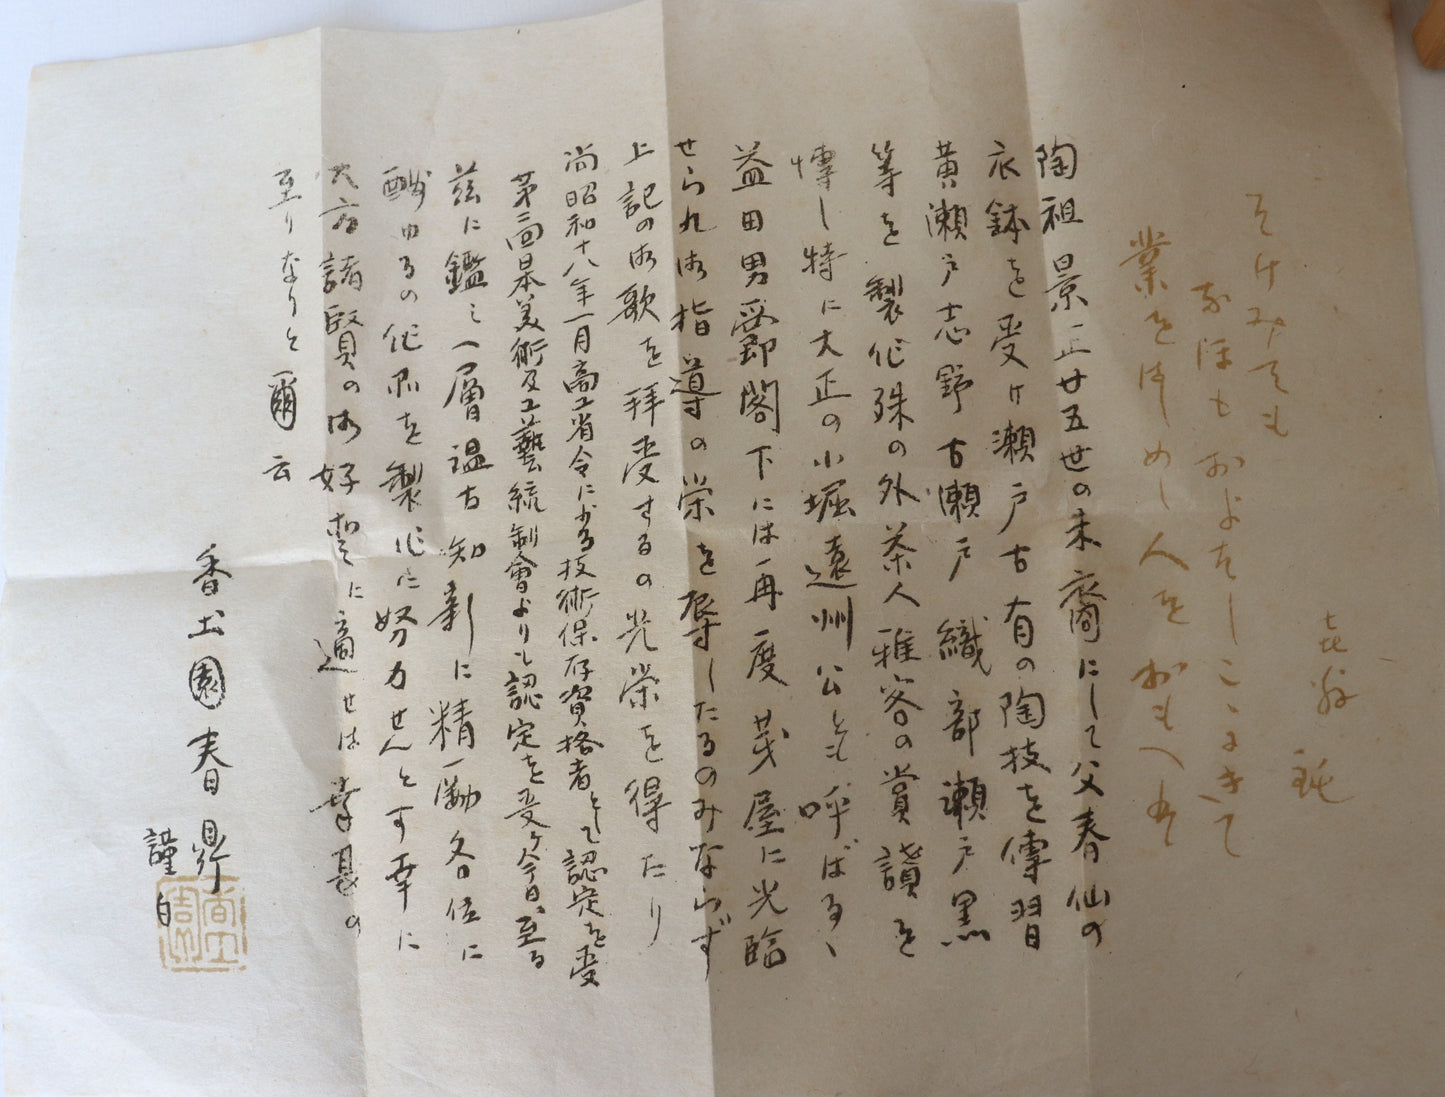 そけみても
なほもおよはしここにきて
業をはしめし人をおもへは
喜翁 鈍
陶祖景正廿五世の末裔にして父春仙の
衣鉢を受け瀬戸古有の陶技を傳習
黄瀬戸志野古瀬戸織部瀬戸黒
等を製作殊の外茶人雅客の賞讃を
博し特に大正の小堀遠州公とも呼ばるゝ
益田男爵閣下には再度茅屋に光臨
せられ御指導の栄を辱ーしたるのみならず
上記の御歌を拝受するの光栄を得たり
尚昭和十八年一月商工省令に依る技術保存資格者として認定を受
第三回日本美術及工藝統制會よりも認定を受ヶ今日に至る
茲に鑑み一層温古知新に精励各位に
酬ゆるの作品を製作に努力せんとす幸に
大方諸賢の御好評に適せは幸甚の
至りなりと爾云
香土園春鼎
謹白